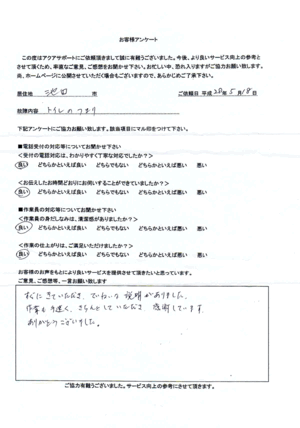 お客様アンケート
この度はアクアサポートにご依頼頂きまして誠に有難うございました。今後、より良いサービス向上の参考と
させて頂くため、率直なご意見、ご感想をお聞かせ下さい。お忙しい中、恐れ入りますがご協力お願い致します。
尚、ホームページに公開させていただく場合もございますので、あらかじめご了承下さい。
居住地 池田 市 ご依頼日 平成28年5月18日
故障内容 トイレのつまり
下記アンケートにご協力お願い致します。該当項目にマル印をつけて下さい。
■電話受付の対応等についてお聞かせ下さい
<受付の電話対応は、わかりやすく丁寧な対応でしたか?>
良い どちらかといえば良い どちらでもない どちらかといえば悪い 悪い
<お伝えしたお時間どおりにお伺いすることができていましたか?>
良い どちらかといえば良い どちらでもない どちらかといえば悪い 悪い
■作業員の対応等についてお聞かせ下さい
<作業員の身だしなみは、清潔感がありましたか?>
良い どちらかといえば良い どちらでもない どちらかといえば悪い 悪い
<作業の仕上がりは、ご満足いただけましたか?>
良い どちらかといえば良い どちらでもない どちらかといえば悪い 悪い
お客様のお声をもとにより良いサービスを提供させて頂きたいと思っています。
ご意見、ご感想等、一言お願い致します
すぐにきていただき、ていねいな説明がありました。
作業も手速く、きちんとしていただき、感謝しています。
ありがとうございました。
ご協力有難うございました。サービス向上の参考にさせて頂きます。